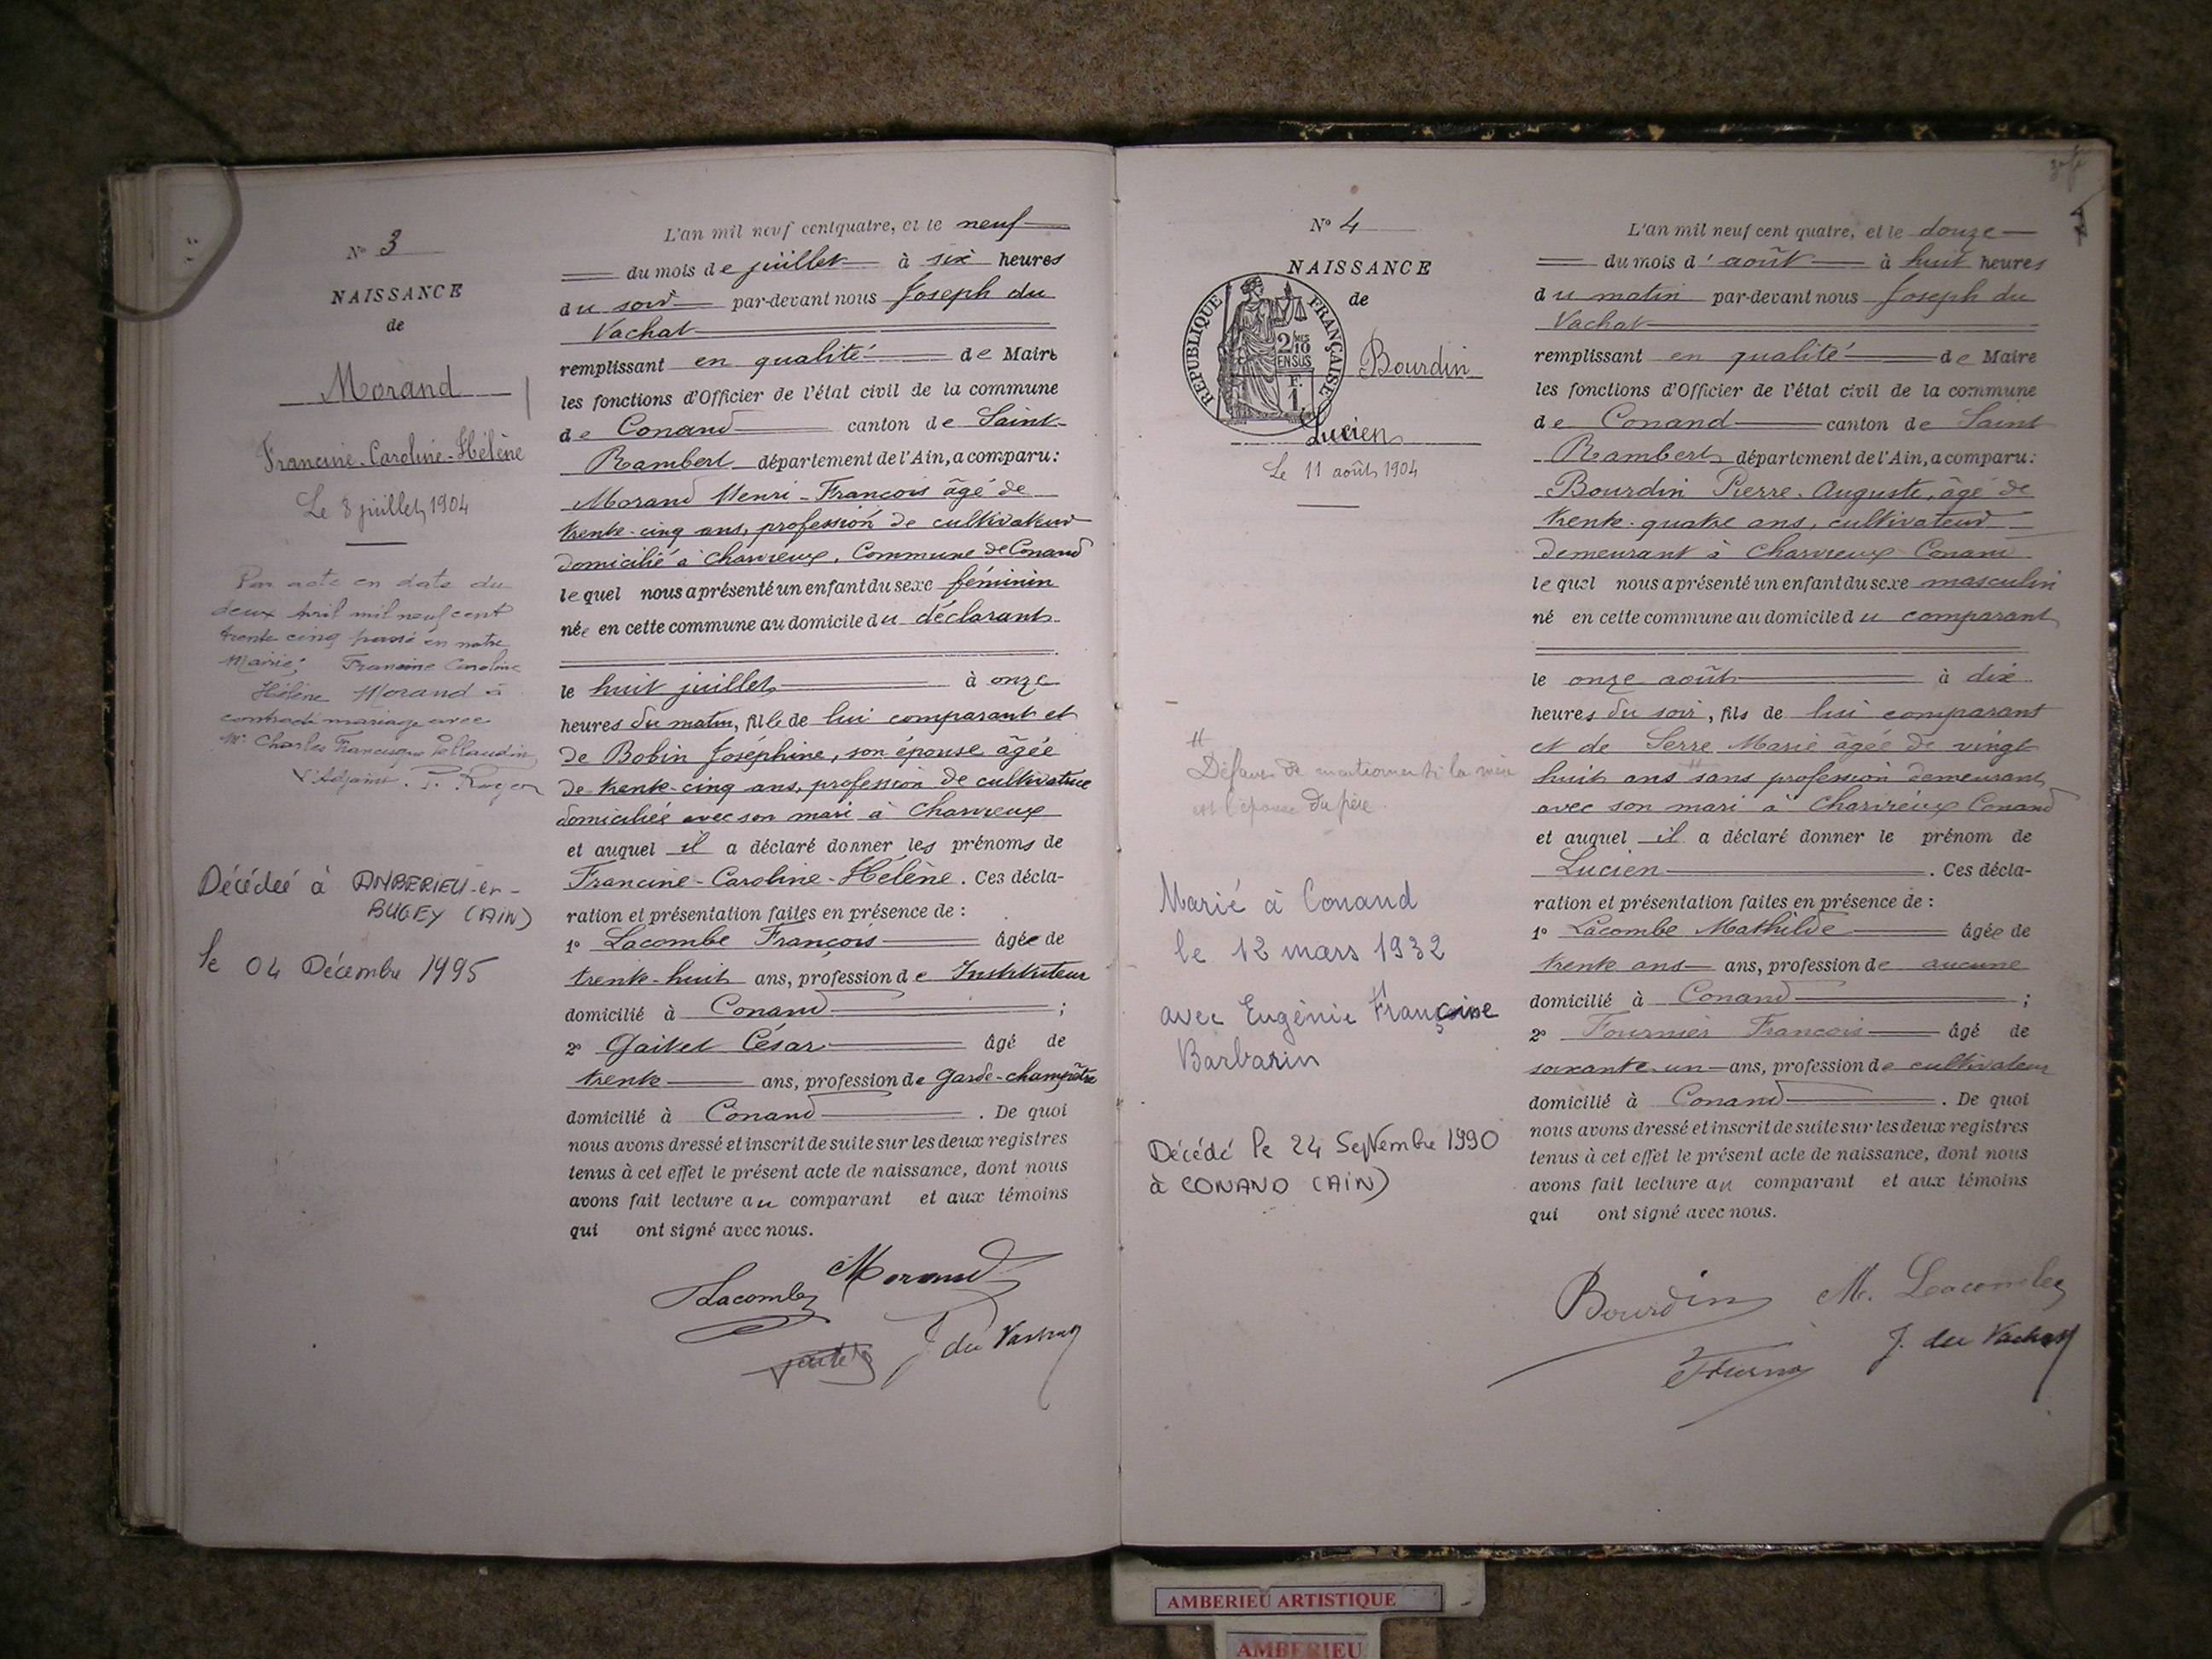 N° 3
NAISSANCE
de
Morand
Francine-Caroline-Hélène
Le 8 juillet 1904
Par acte en date du
deux Avril mil neuf cent
trente cinq passé en notre
Mairie, Francine Caroline
Hélène Morand a
contracté mariage avec
Mr Charles Francisque Pellaudin
L'Adjoint
Décédée à AMBERIEU-en-
BUGEY (AIN)
le 04 Décembre 1995
L'an mil neuf cent quatre, et le neuf
du mois de juillet à six heures
du soir par-devant nous Joseph du
Vachat
remplissant en qualité de Maire
les fonctions d'Officier de l'état civil de la commune
de Conand canton de Saint-
Rambert département de l'Ain, a comparu:
Morand Henri-François âgé de
trente-cinq ans, profession de cultivateur
domicilié à Charvieux, Commune de Conand
lequel nous a présenté un enfant du sexe féminin
née en cette commune au domicile du déclarant
le huit juillet à onze
heures du matin, fille de lui comparant et
de Bobin Joséphine, son épouse âgée
de trente-cinq ans, profession de cultivatrice
domiciliée avec son mari à Charvieux
et auquel il a déclaré donner les prénoms de
Francine-Caroline-Hélène. Ces décla-
ration et présentation faites en présence de :
1° Lacombe François âgée de
trente-huit ans, profession de Instituteur
domicilié à Conand ;
2° Gaitet César âgé de
trente ans, profession de Garde-champêtre
domicilié à Conand . De quoi
nous avons dressé et inscrit de suite sur les deux registres
tenus à cet effet le présent acte de naissance, dont nous
avons fait lecture au comparant et aux témoins
qui ont signé avec nous.
Lacombe Morand
J. du Vachat
N° 4
NAISSANCE
de
REPUBLIQUE FRANÇAISE
2 MES
10
EN SUS
F.
1
Bourdin
Lucien
Le 11 août 1904
Défaut de mentionner si la mère
est l'épouse du père.
Marié à Conand
le 12 mars 1932
avec Eugénie Françoise
Barbarin
Décédé le 24 Septembre 1990
à CONAND (AIN)
L'an mil neuf cent quatre, et le douze
du mois d'août à huit heures
du matin par-devant nous Joseph du
Vachat
remplissant en qualité de Maire
les fonctions d'Officier de l'état civil de la commune
de Conand canton de Saint
Rambert département de l'Ain, a comparu:
Bourdin Pierre-Auguste, âgé de
trente-quatre ans, cultivateur
demeurant à Charvieux Conand
lequel nous a présenté un enfant du sexe masculin
né en cette commune au domicile du comparant
le onze août à dix
heures du soir, fils de lui comparant
et de Serre Marie âgée de vingt
huit ans sans profession demeurant
avec son mari à Charvieux Conand
et auquel il a déclaré donner le prénom de
Lucien . Ces décla-
ration et présentation faites en présence de :
1° Lacombe Mathilde âgée de
trente ans ans, profession de aucune
domicilié à Conand ;
2° Fournier François âgé de
soixante-un ans, profession de cultivateur
domicilié à Conand . De quoi
nous avons dressé et inscrit de suite sur les deux registres
tenus à cet effet le présent acte de naissance, dont nous
avons fait lecture au comparant et aux témoins
qui ont signé avec nous.
Bourdin M. Lacombe
J. du Vachat
AMBERIEU ARTISTIQUE
AMBERIEU